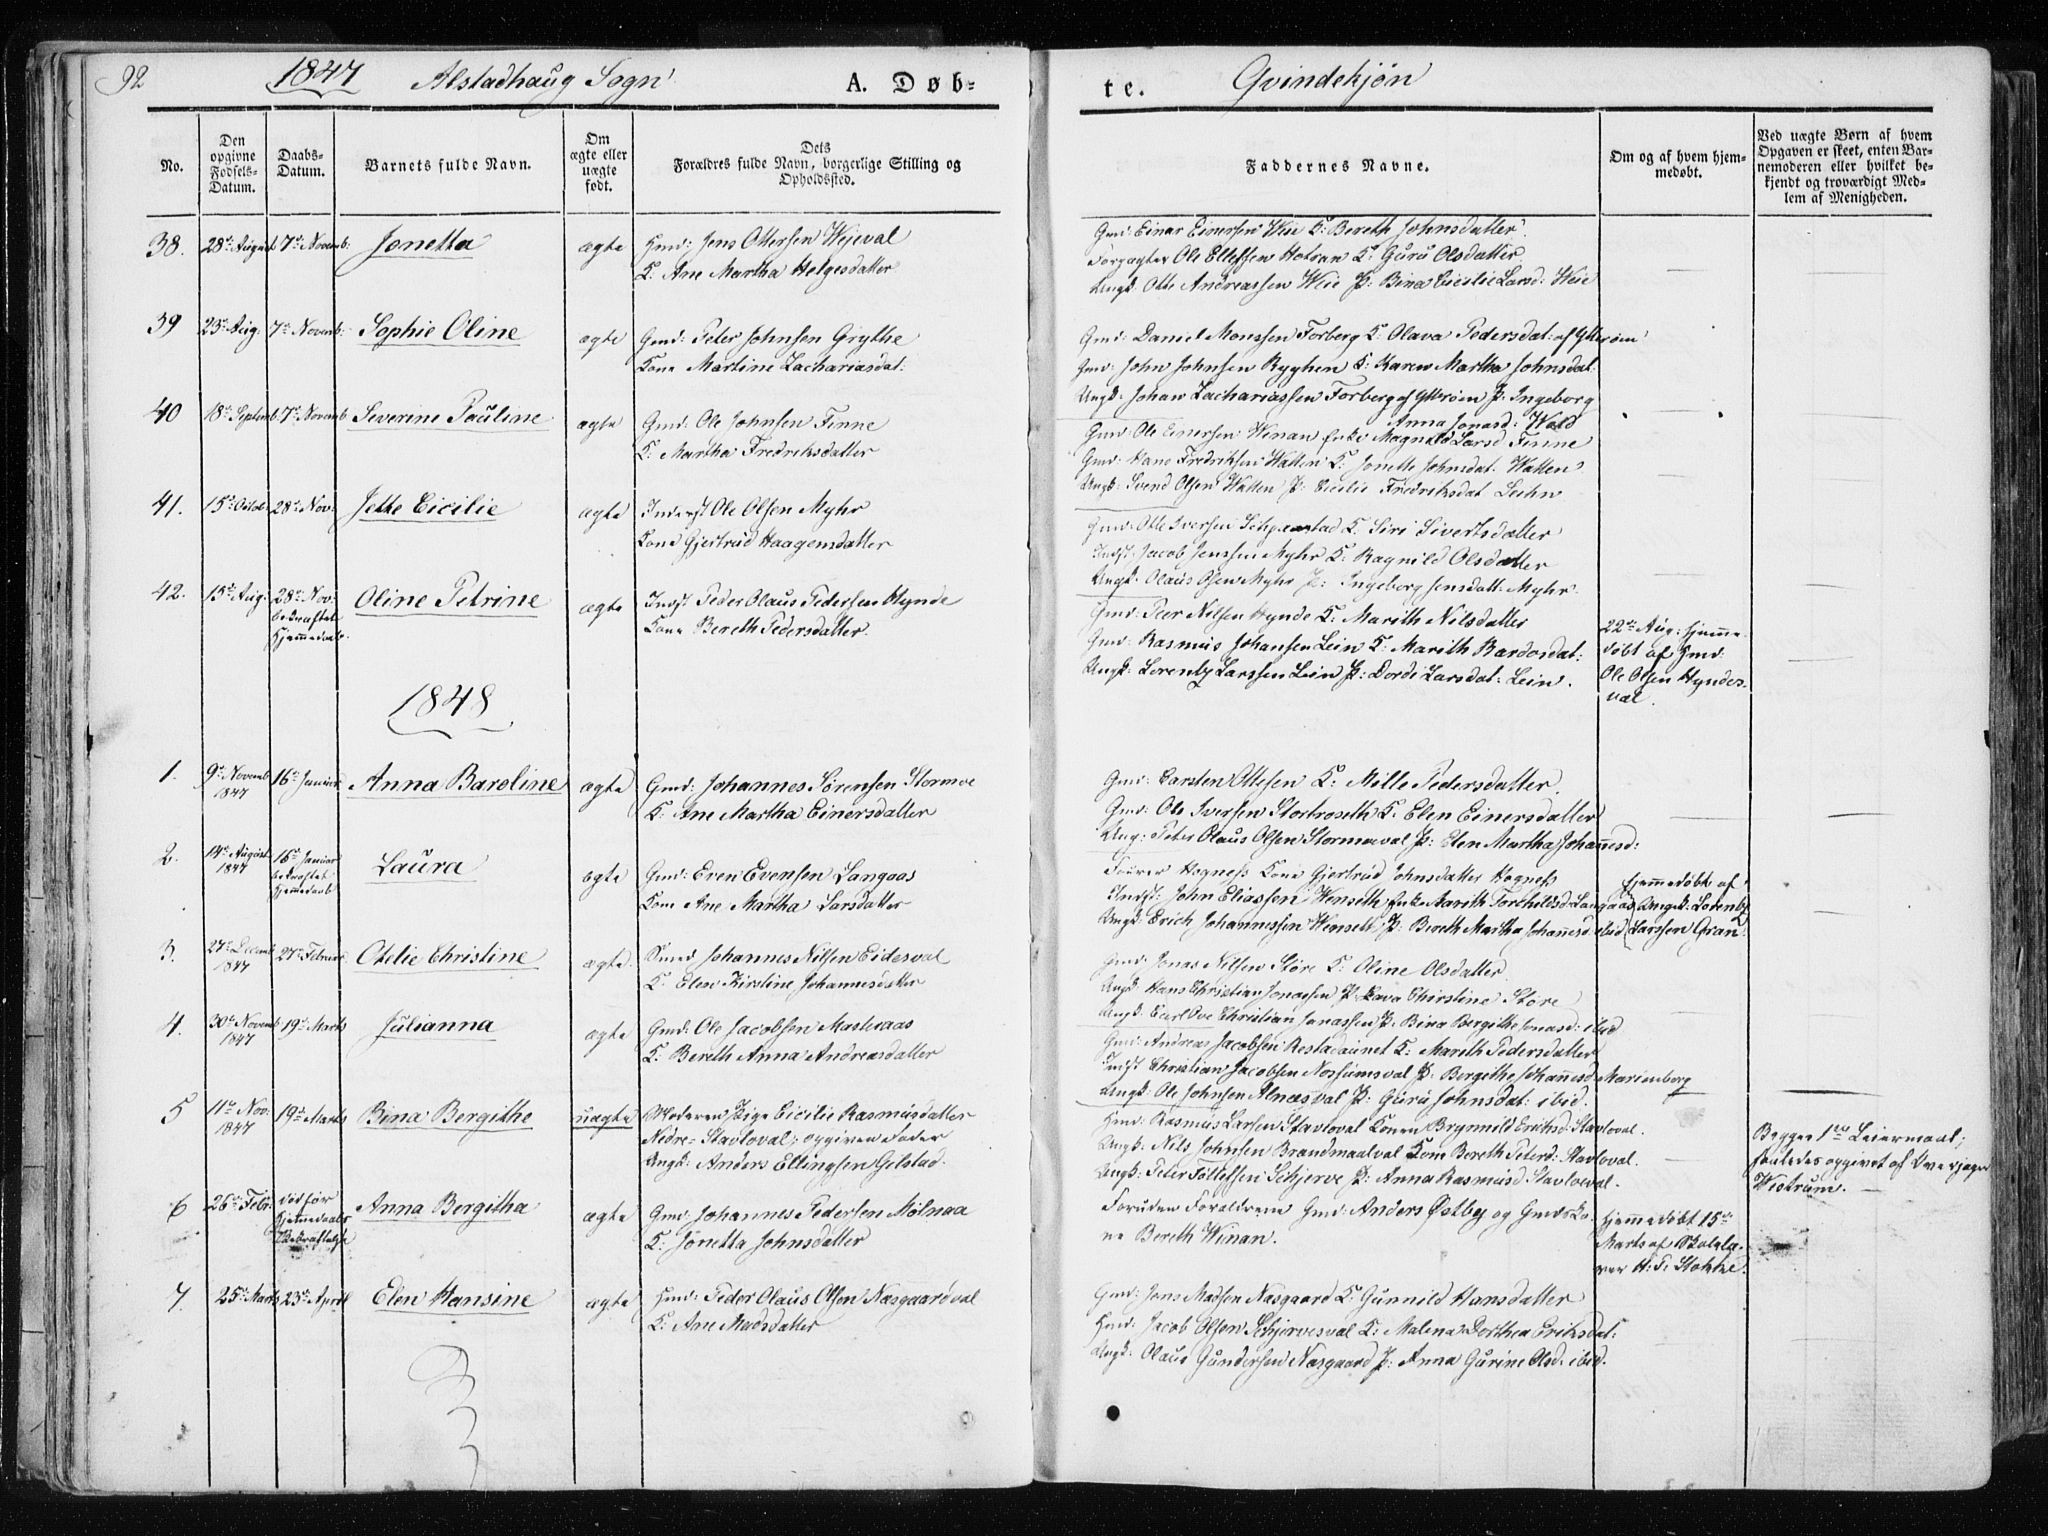 92
1847 Alstadhaug Sogn
A. Døb-
te.
Qvindekjøn
No.
Den opgivne Fødsels-Datum.
Daabs-Datum.
Barnets fulde Navn.
Om ægte eller uægte født.
Dets Forældres fulde Navn, borgerlige Stilling og Opholdssted.
Faddernes Navne.
Om og af hvem hjem-
medøbt.
Ved uægte Børn af hvem
Opgaven er skeet, enten Bar-
nemoderen eller hvilket be-
kjendt og troværdigt Med-
lem af Menigheden.
38. 28de August 7de Novemb: Jonetta ægte Hmd: Jens Ottersen Wejeval
K: Ane Martha Helgesdatter
Gmd: Einar Einersen Weie K: Bereth Johnsdatter
Forpagter Ole Ellefsen Hotran K: Guru Olsdatter
Ungk: Otte Andreassen Weie P: Bina Cicilie Larsd: Weie
39 23de Aug. 7de Novemb: Sophie Oline ægte Gmd: Peter Johnsen Grythe
Kone Martine Zachariasdat:
Gmd: Daniel Monssen Forberg K: Olava Pedersdat: af Ytterøen
Gmd: John Johnsen Rygghen K: Karen Martha Johnsdat:
Ungk: Johan Zachariassen Forberg af Ytterøen P: Ingeborg
Anna Jonasd: Wold
40 18de Septemb. 7de Novemb. Severine Pauline ægte Gmd: Ole Johnsen Finne
K: Martha Fredriksdatter
Gmd: Ole Einersen Winan Enke Magnild Larsd Finne
Gmd: Hans Fredriksen Watten K: Jonette Johnsdat: Watten
Ungk: Svend Olsen Watten P: Cicilie Fredriksdat Leihn
41. 15de Octob: 28de Nov: Jette Cicilie ægte Inderst Ole Olsen Myhr
Kone Gjertrud Haagensdatter
Gmd: Otte Iversen K: Siri Sivertsdatter
Indst: Jacob Jenssen Myhr K: Ragnild Olsdatter
Ungk: Olaus Olsen Myhr P: Ingeborg Jensdatt: Myhr.
42. 15de Aug: 28de Nov: bekræftet Hjemmedaab. Oline Petrine ægte Indst Peder Olaus Pedersen Hynde
Kone Bereth Pedersdatter.
Gmd: Peer Nilsen Hynde K: Marith Nilsdatter
Gmd: Rasmus Johansen Lein K: Marith Bardosdat:
Ungk: Lorentz Larssen Lein P: Dordi Larsdat: Lein.
22de Aug: hjemme
døbt af Gmd:
Ole Olsen Hyndes-
val.
1848
1. 9de Novemb 1847 16de Januar Anna Baroline ægte Gmd: Johannes Sørensen Stormoe
K: Ane Martha Einersdatter
Gmd: Carsten Ottesen K: Mille Pedersdatter.
Gmd: Ole Iversen Stortroseth K: Elen Einersdatter
Ung: Peter Olaus Olsen Stormoeval P: Elen Martha Johannesd:
2. 14de August 1847 16de Januar bekræftet Hjemmedaab Laura ægte Gmd: Even Evensen Langaas
Kone Ane Martha Larsdatter
Fourer Hogness Kone Gjertrud Johnsdatter Hogness
Indst: John Eliassen Wenseth Enke Marith Torkildsd Langaas
Ungk: Erich Johannessen Wenseth P: Bereth Martha Johannesd ibid
Hjemmedøbt af
Ungk: Lorentz
Larssen Gran
3. 27de Decemb 1847 27de Februar Otelie Christine ægte. Smed Johannes Nilsen Eidesval
K: Elen Kirstine Johannesdatter
Gmd: Jonas Nilsen Støre K: Oline Olsdatter
Ungk: Hans Christian Jonassen P: Lava Christine Støre
Ungk: Carl Ove Christian Jonassen P: Bina Bergithe Jonasd: ibid
4. 30de Novemb 1847 19de Marts Julianna ægte Gmd: Ole Jacobsen Masteraas
K: Bereth Anna Andreasdatter
Gmd: Andreas Jacobsen Rostadaunet K: Marith Pedersdatter
Indst Christian Jacobsen Nossumsval P: Bergithe Johannesd Marienborg
Ungk: Ole Johnsen Alnæsval P: Guru Johnsdat: ibid.
5 11te Nov: 1847 19de Marts Bina Bergithe uægte Moderen Pige Cicilie Rasmusdatter
Nedre-Stavloval; opgiven Fader
Ungk: Anders Ellingsen Gilstad.
Hmd: Rasmus Larsen Stavloval Konen Brynnild Eriksd: Stavloval.
Ungk: Nils Johnsen Brandmoalval Kone Bereth Petersd: Stavloval.
Ungk: Peter Tøllefsen Schjerve P: Anna Rasmusd Stavloeval.
Begges 1ste Leiermaal;
saaledes opgivet af
Wistrum.
6 26de Febr: Hjemmedaabs Bekræftelse Anna Bergitha ægte Gmd: Johannes Pedersen Mölnaa
K: Jonetta Johnsdatter
Foruden Forældrene Gmd: Anders Østby og Gmds Ko-
ne Bereth Winan.
Hjemmedøbt 15de
Marts af Skolelæ-
rer H: P. Stokke.
7 25de Marts 23de April Elen Hansine ægte Hmd: Peder Olaus Olsen Næsgaardval
K: Ane Madsdatter
Gmd: Jens Madsen Næsgaard K: Gunnild Hansdatter
Hmd: Jacob Olsen Schjervesval K: Malena Dorthea Eriksdat:
Ungk: Olaus Gundersen Næsgaard P: Anna Gurine Olsd. ibid.